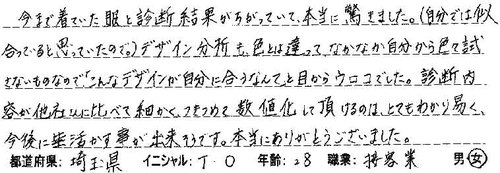 今まで着ていた服と診断結果がちがっていて、本当に驚きました。(自分では似
合ってると思っていたので。)デザイン分析も、色とは違って、なかなか自分から色で試
さないものなので「こんなデザインが自分に合うなんて」と目からウロコでした。診断内
容が他社に比べて細かく、つきつめて数値化して頂けるのは、とてもわかり易く、
今後に生活かす事が出来そうです。本当にありがとうございました。
都道府県:埼玉県 イニシャル:T・O 年齢:28 職業:接客業 男・女